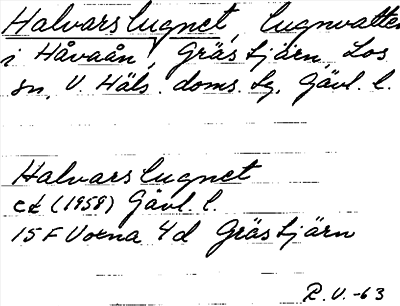 Halvarslugnet, lugnvatten
i Håvaån, Grästjärn, Los
sn, V. Häls. doms. tg, Gävl. l.
Halvarslugnet
ek (1958) Gävl. l.
15 F Voxna 4d Grästjärn
R.V.-63